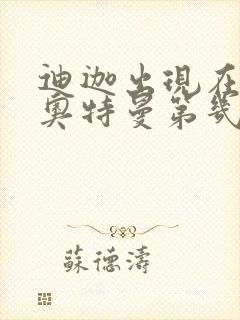 迪迦出現在
奧特曼第幾
蘇德濤